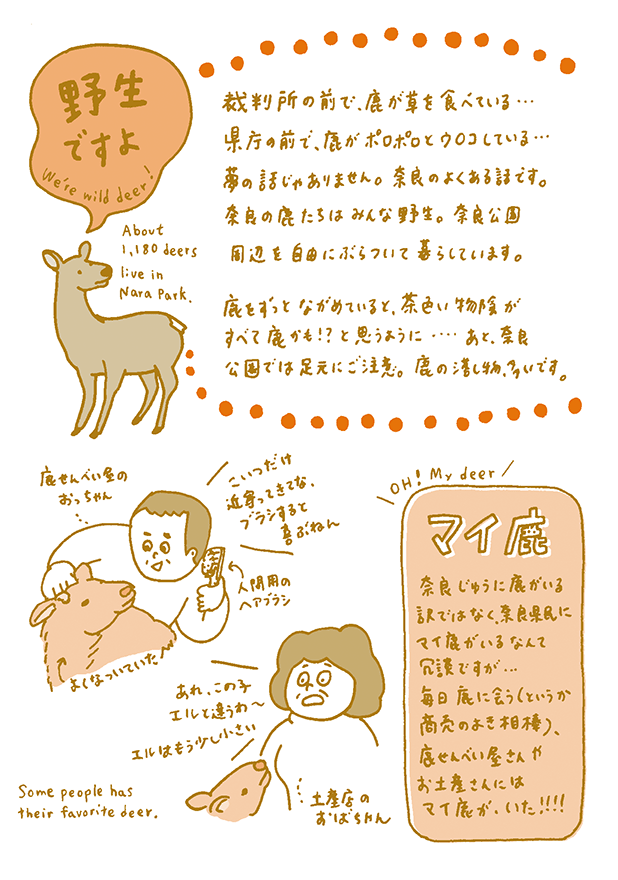 野生
ですよ
We're wild deer!
About
1,180 deers
live in
Nara Park.
裁判所の前で、鹿が草を食べている…
県庁の前で、鹿がポロポロとウロコしている…
夢の話じゃありません。奈良のよくある話です。
奈良の鹿たちはみんな野生。奈良公園
周辺を自由にぶらついて暮らしています。
鹿をずっとながめていると、茶色い物陰が
すべて鹿かも!?と思うように…… あと、奈良
公園では足元にご注意。鹿の落し物、多いです。
鹿せんべい屋の
おっちゃん
こいつだけ
近寄ってきてな、
ブラシすると
喜ぶねん
人間用の
ヘアブラシ
よくなついていた
あれ、この子
エルと違うわ〜
エルはもう少し小さい
土産店の
おばちゃん
Some people has
their favorite deer.
OH! My deer
マイ鹿
奈良じゅうに鹿がいる
訳ではなく、奈良県民に
マイ鹿がいるなんて
冗談ですが…
毎日鹿に会う(というか
商売のよき相棒)、
鹿せんべい屋さんや
お土産さんには
マイ鹿が、いた!!!!